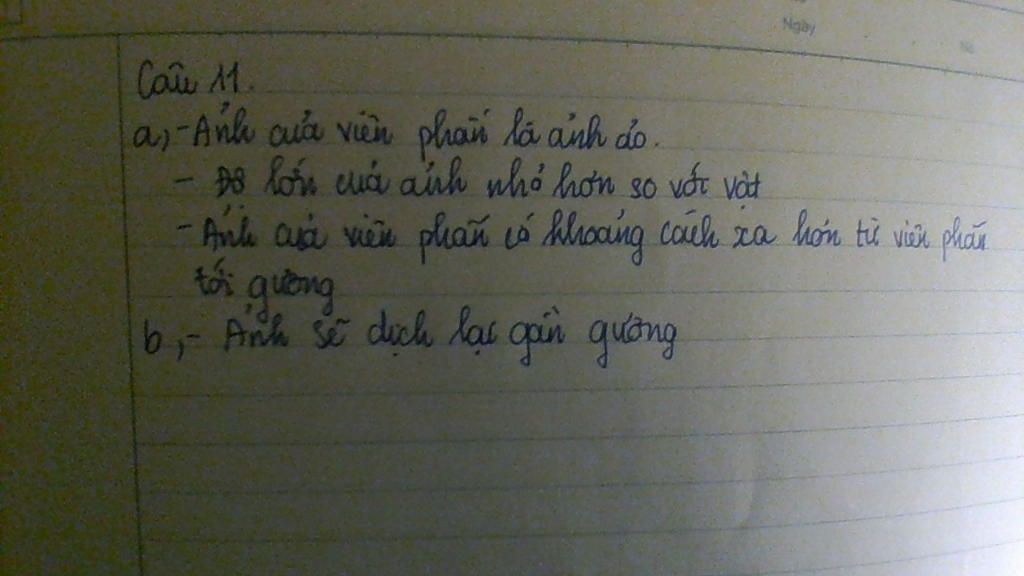 Ngày
Câu 11.
a, - Ảnh của viên phấn là ảnh ảo.
- Độ lớn của ảnh nhỏ hơn so với vật
- Ảnh của viên phấn có khoảng cách xa hơn từ viên phấn
tới gương
b, - Ảnh sẽ dịch lại gần gương